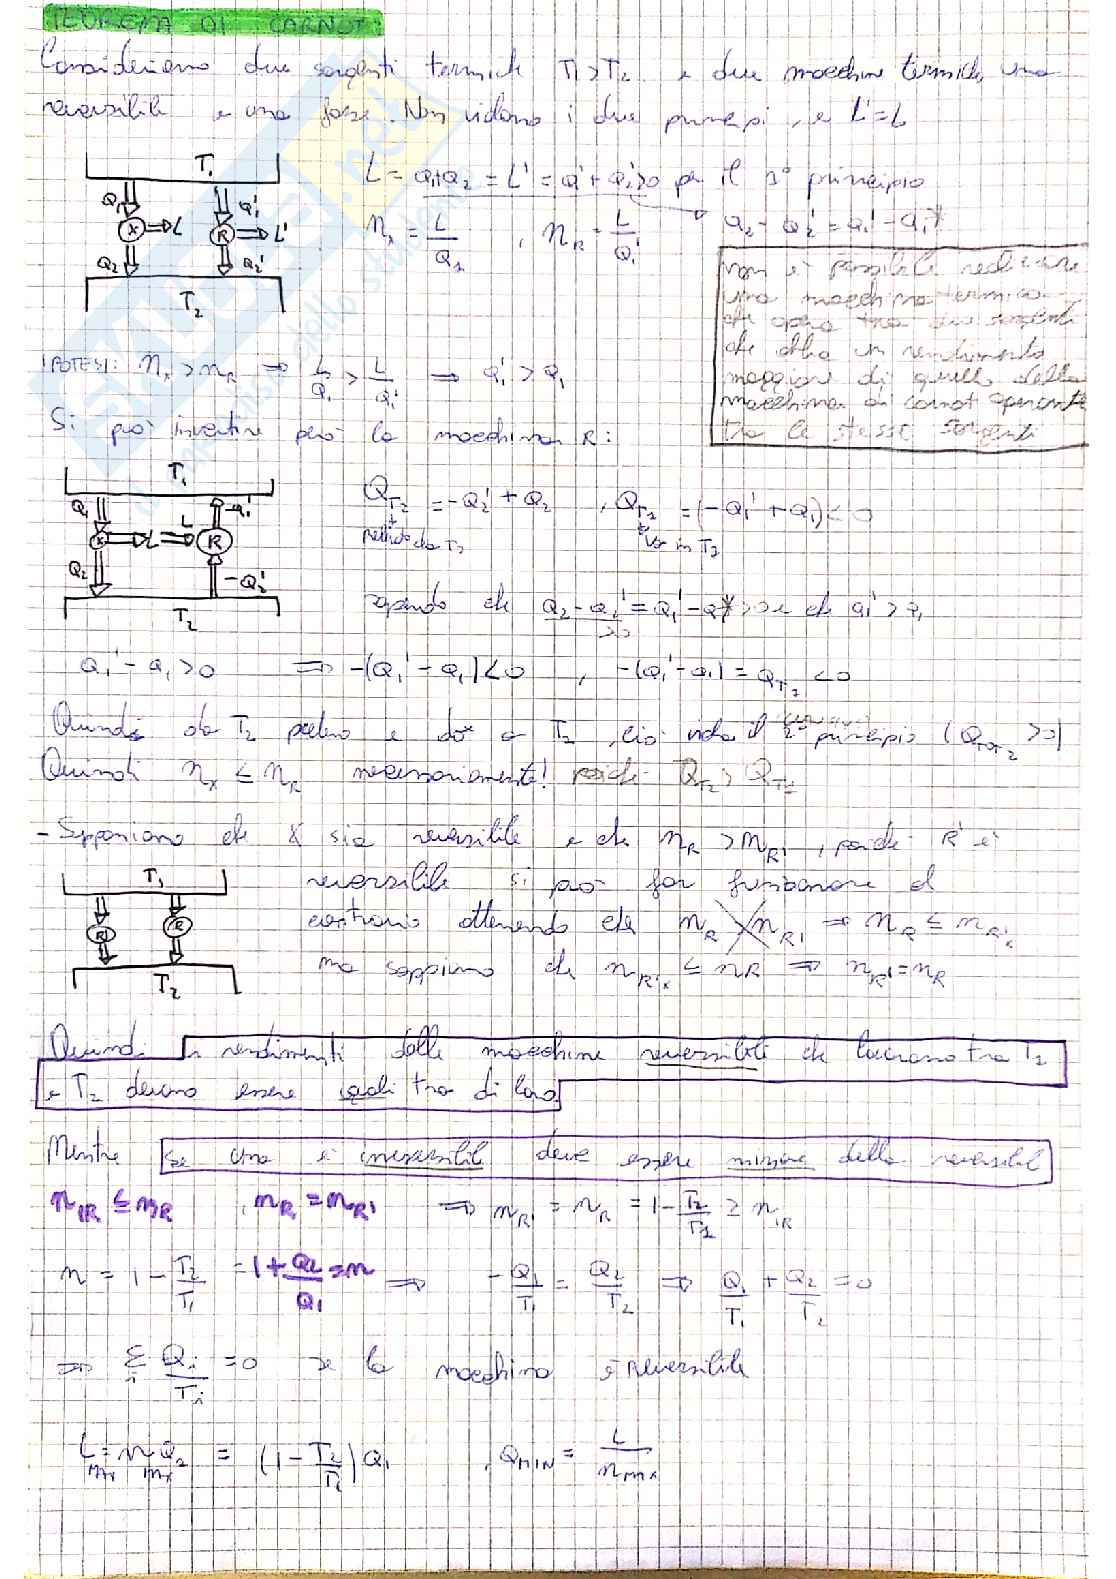 TEOREMA DI CARNOT:
Consideriamo due sorgenti termiche T1>T2 e due macchine termiche, una
reversibile e una forse. Non violano i due principi, e L'=L
T1
Q1 Q1'
X ⇒ L R ⇒ L'
Q2 Q2'
T2
L = Q1+Q2 = L' = Q1'+Q2'>0 per il 1° principio
Q2 - Q2' = Q1' - Q1*
nx = L/Q1 , nR = L/Q1'
Non è possibile realizzare
una macchina termica
che opera tra due sorgenti
che abbia un rendimento
maggiore di quello della
macchina di carnot operante
tra le stesse sorgenti
IPOTESI: nx > nR ⇒ L/Q1 > L/Q1' ⇒ Q1' > Q1
Si può invertire però la macchina R:
T1
Q1 L -Q1'
X ⇒ L ⇒ R
Q2 -Q2'
T2
QT2 = -Q2' + Q2 , QT2 = (-Q1' + Q1) < 0
da T2 in T2
sapendo che Q2 - Q2' = Q1' - Q1* >0 e che Q1' > Q1
>0
Q1' - Q1 > 0 ⇒ -(Q1' - Q1) < 0 , -(Q1' - Q1) = QT2 < 0
Quindi da T2 prelevo e do a T2, ciò viola il 2° principio (QTOT2 >0)
Quindi nx ≤ nR necessariamente! poiché QT2 > QT2
- Supponiamo che X sia reversibile e che nR > nR', poiché R' è
reversibile si può far funzionare al
contrario ottenendo che nR > nR' ⇒ nR ≤ nR'x
ma sappiamo che nR'x ≤ nR ⇒ nR' = nR
T1
R' R
T2
Quindi i rendimenti delle macchine reversibili che lavorano tra T1
e T2 devono essere uguali tra di loro
Mentre se una è irreversibil deve essere minore della reversibil
nIR ≤ nR , nR = nR' ⇒ nR' = nR = 1 - T2/T1 ≥ nIR
n = 1 - T2/T1 = 1 + Q2/Q1 = n ⇒ -Q1/T1 = Q2/T2 ⇒ Q1/T1 + Q2/T2 = 0
⇒ Σi Qi/Ti = 0 se la macchina è reversibile
Lmax = nmax Q1 = (1 - T2/T1) Q1 , QMIN = L/nMAX